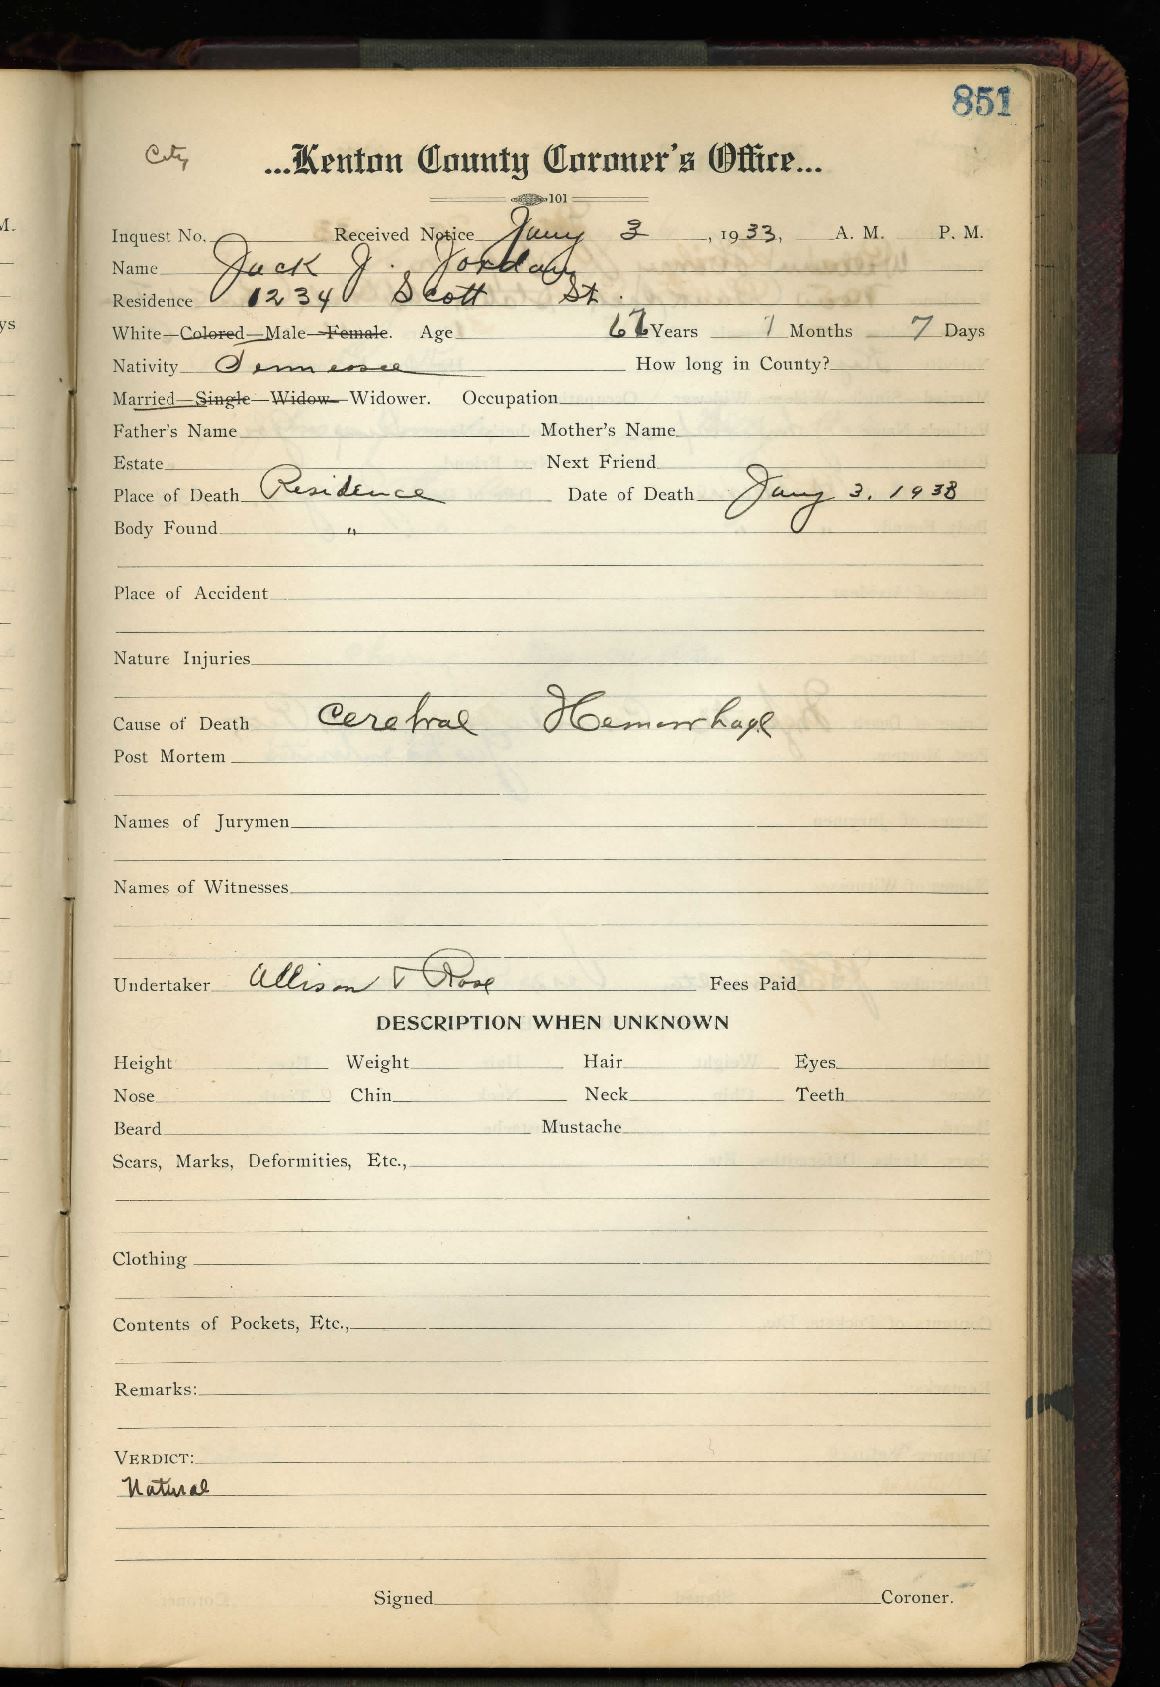 851
City
...Kenton County Coroner's Office...
101
Inquest No. Received Notice Jany 3, 1933, A. M. P. M.
Name Jack J. Jordan
Residence 1234 Scott St.
White—Colored—Male—Female. Age Years 7 Days Months
Nativity Tennessee How long in County?
Married—Single—Widow—Widower. Occupation
Father's Name Mother's Name
Estate Next Friend
Place of Death Residence Date of Death Jany 3, 1933
Body Found "
Place of Accident
Nature Injuries
Cause of Death Cerebral Hemorrhage
Post Mortem
Names of Jurymen
Names of Witnesses
Undertaker Allison & Rose Fees Paid
DESCRIPTION WHEN UNKNOWN
Height Weight Hair Eyes
Nose Chin Neck Teeth
Beard Mustache
Scars, Marks, Deformities, Etc.,
Clothing
Contents of Pockets, Etc.,
Remarks:
VERDICT:
Natural
Signed Coroner.